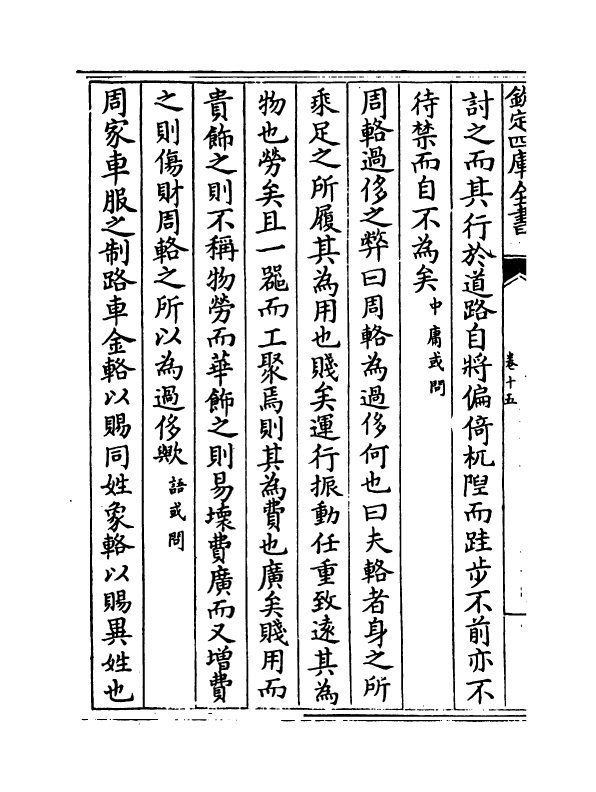 欽定四庫全書
卷十五
討之而其行於道路自將偏倚杌隉而跬步不前亦不
待禁而自不為矣中庸或問
周輅過侈之弊曰周輅為過侈何也曰夫輅者身之所
乘足之所履其為用也賤矣運行振動任重致逺其為
物也勞矣且一器而工聚焉則其為費也廣矣賤用而
貴飾之則不稱物勞而華飾之則易壞費廣而又增費
之則傷財周輅之所以為過侈歟語或問
周家車服之制路車金輅以賜同姓象輅以賜異姓也